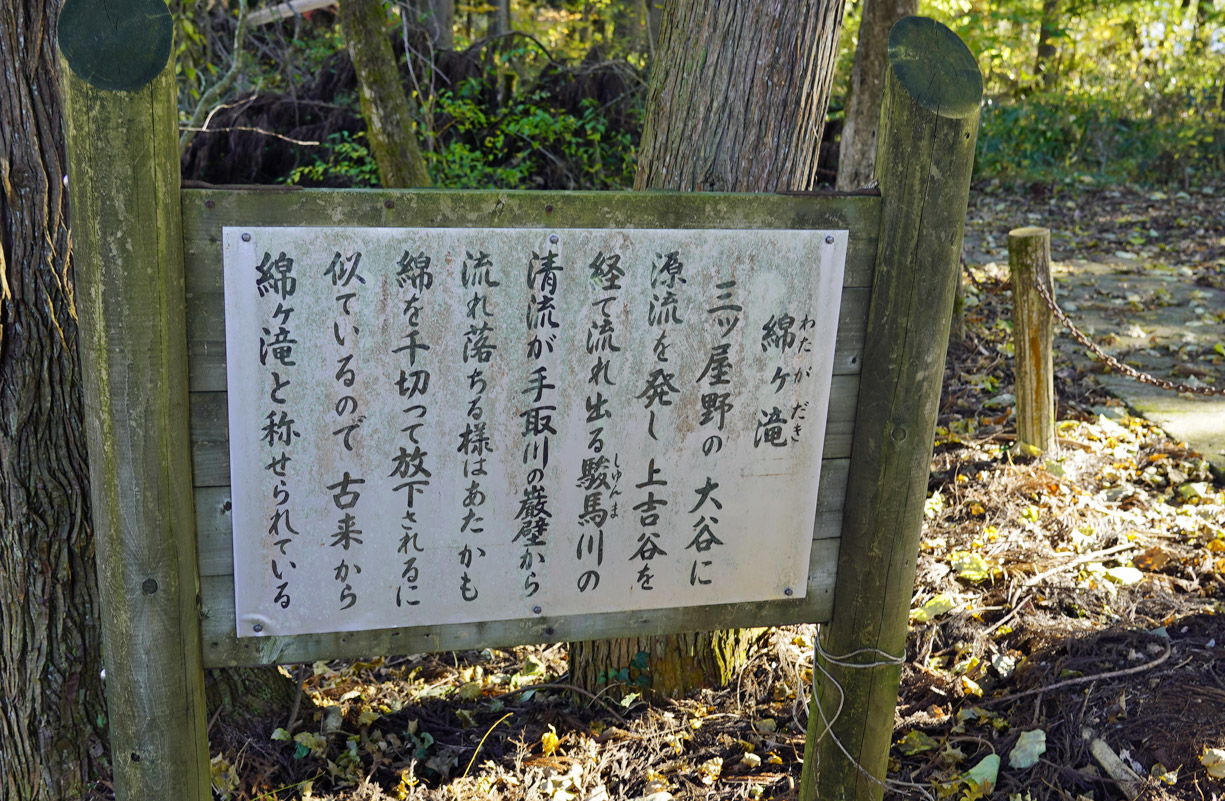 綿ヶ滝
わたがだき
三ッ屋野の大谷に
源流を発し上吉谷を
経て流れ出る駿馬川の
しゅんま
清流が手取川の巌壁から
流れ落ちる様はあたかも
綿を手切って放下されるに
似ているので古来から
綿ヶ滝と称せられている